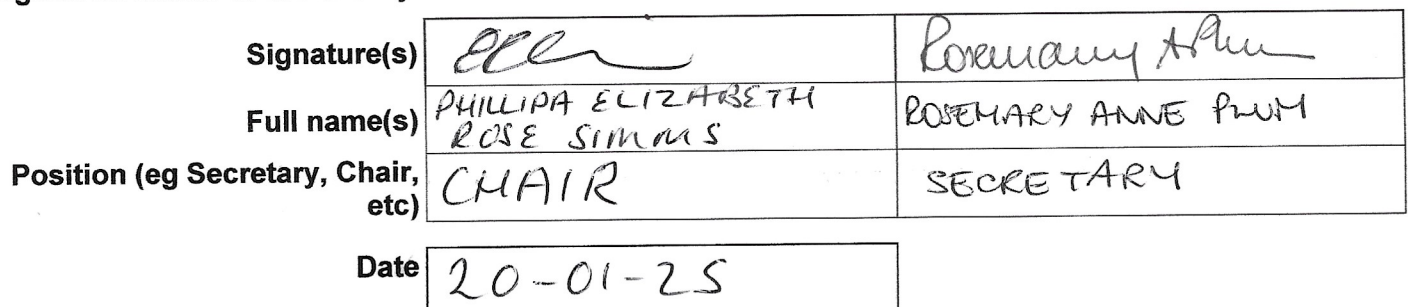 Signature(s) Rosemary A Plum
Full name(s) PHILLIPA ELIZABETH ROSEMARY ANNE PLUM
ROSE SIMMS
Position (eg Secretary, Chair, CHAIR SECRETARY
etc)
Date 20-01-25